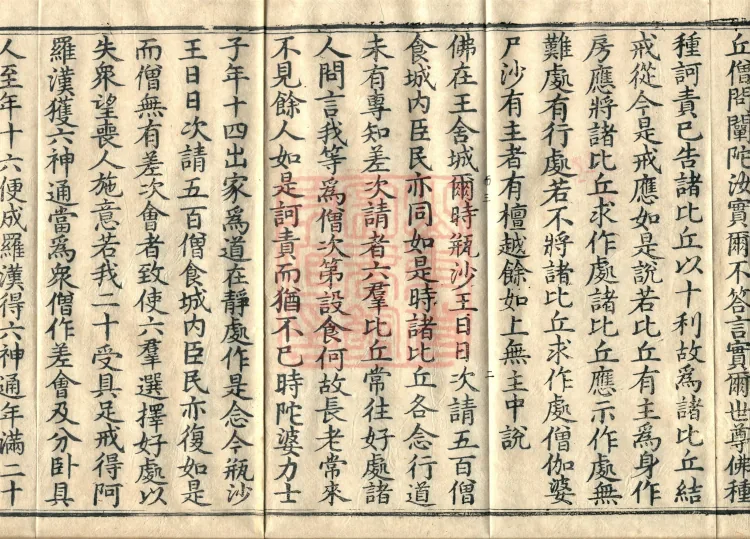 丘僧問闡陀汝實爾不答言實爾世尊佛種
種訶責已告諸比丘以十利故爲諸比丘結
戒從今是戒應如是說若比丘有主爲身作
房應將諸比丘求作處諸比丘應示作處無
難處有行處若不將諸比丘求作處僧伽婆
尸沙有主者有檀越餘如上無主中說
佛在王舍城爾時瓶沙王日日次請五百僧
食城内臣民亦同如是時諸比丘各念行道
未有專知差次請者六羣比丘常往好處諸
人問言我等爲僧次第設食何故長老常來
不見餘人如是訶責而猶不已時陀婆力士
子年十四出家爲道在靜處作是念今瓶沙
王日日次請五百僧食城内臣民亦復如是
而僧無有差次會者致使六羣選擇好處以
失衆望喪人施意若我二十受具足戒得阿
羅漢獲六神通當爲衆僧作差會及分卧具
人至年十六便成羅漢得六神通年滿二十